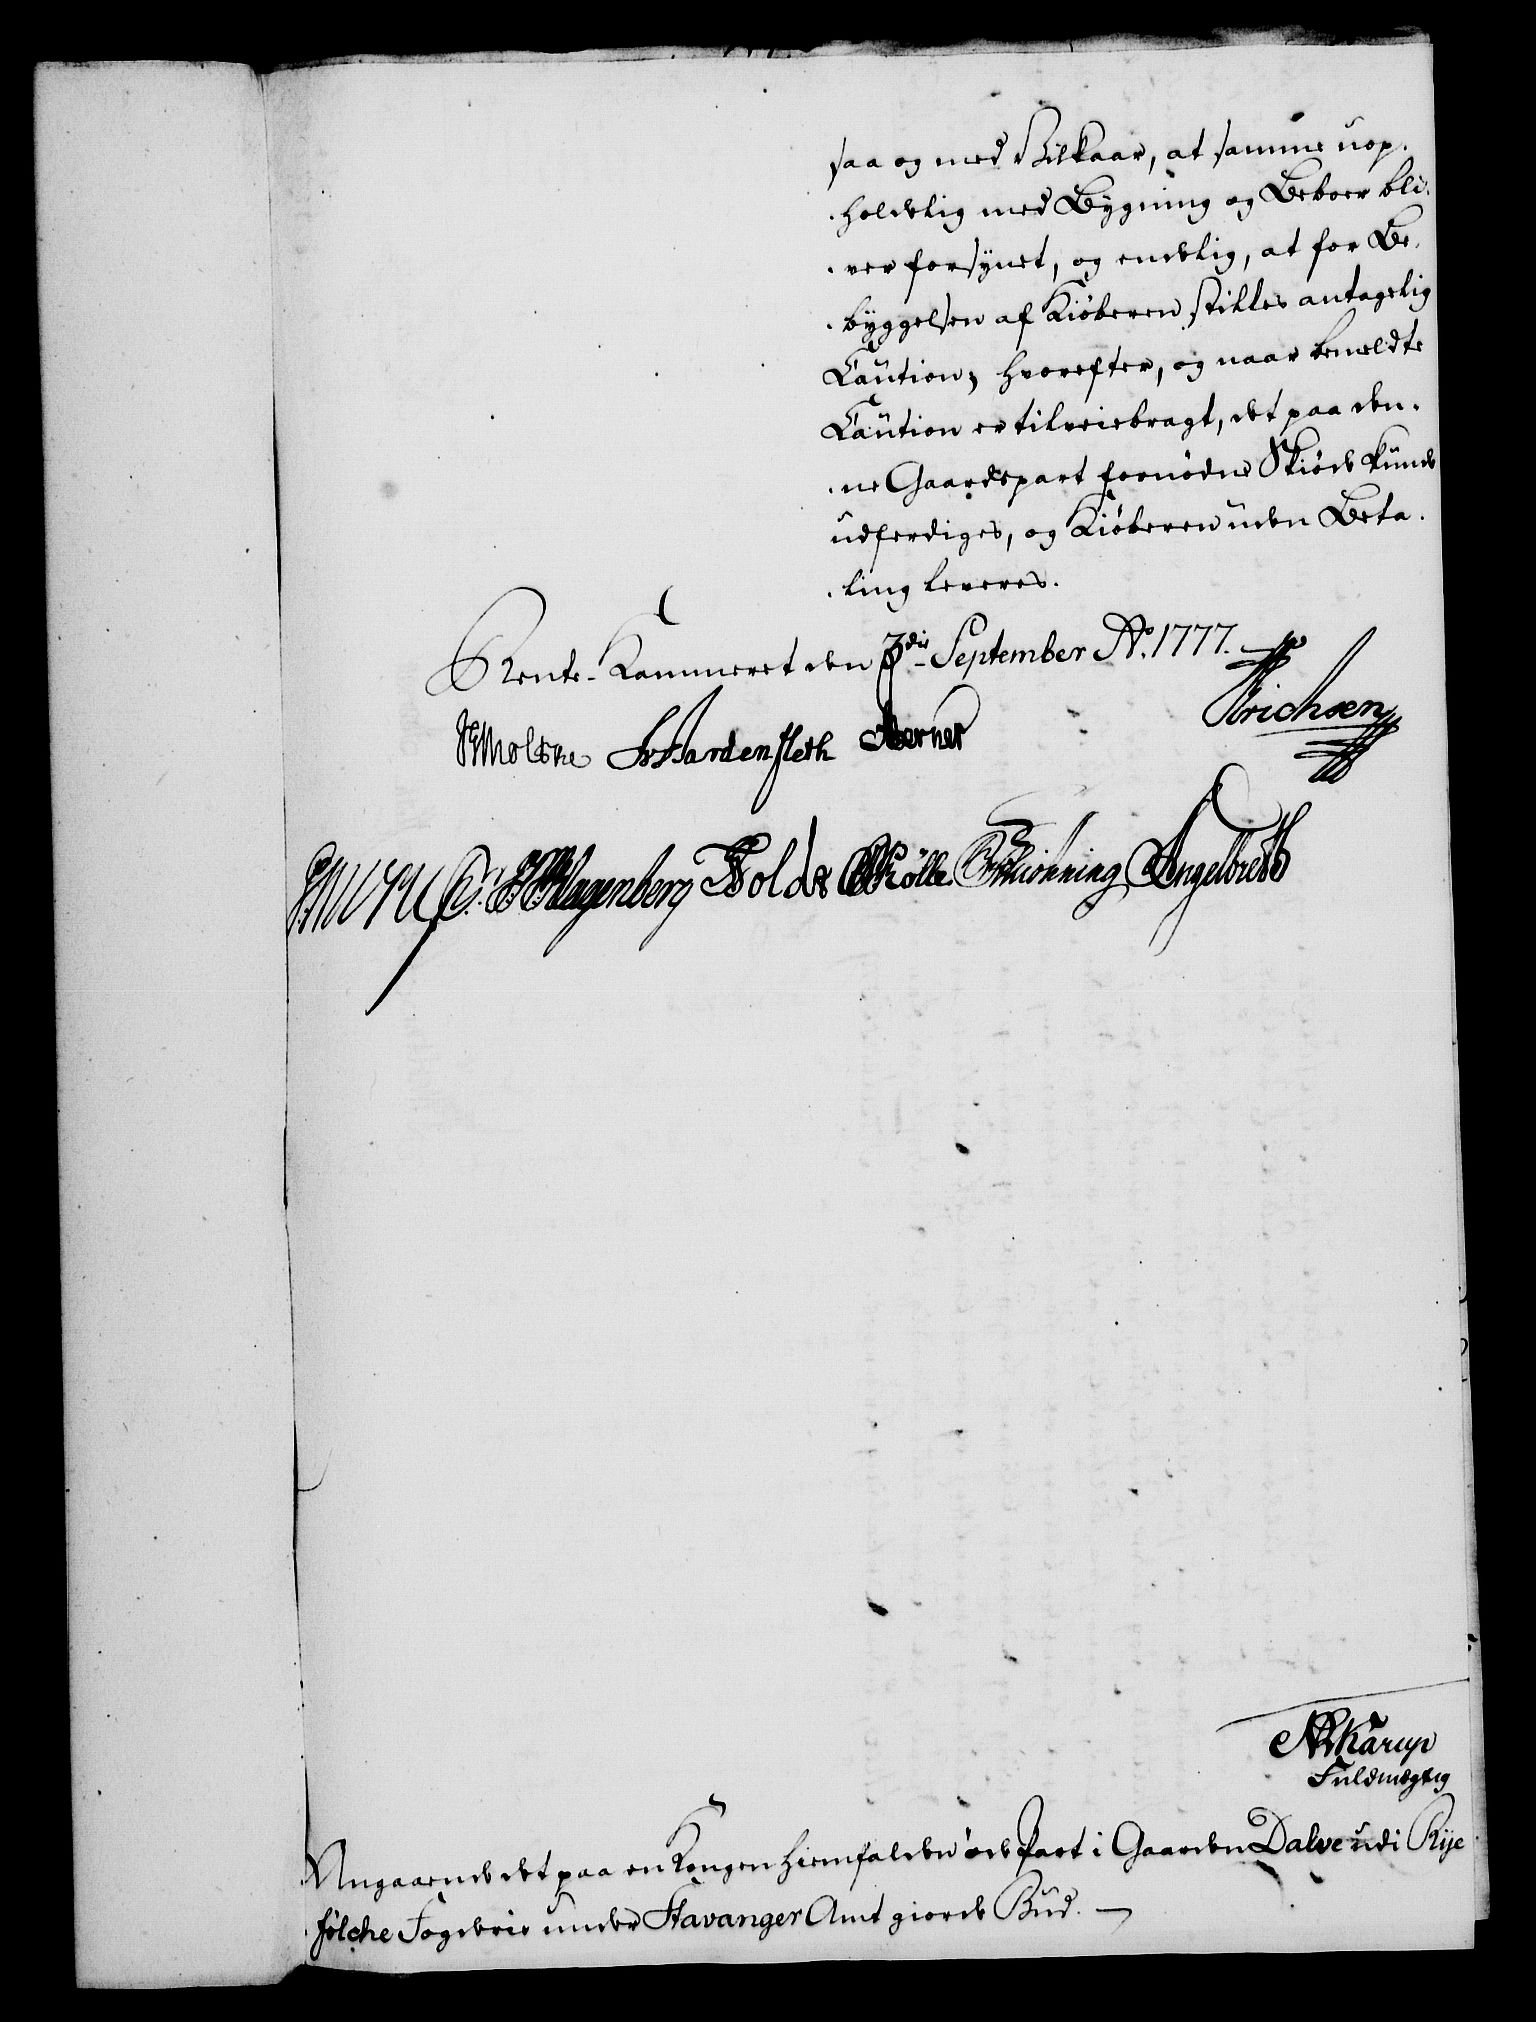 saa og med Vilkaar, at samme uop-
-holdelig med Bygning og Beboer bli-
-ver forsynet, og endelig, at for Be-
-byggelsen af Kiöberen stilles antagelig
Caution; hvorefter, og naar bemeldte
Caution er tilveiebragt, det paa den-
-ne Gaardepart fornödne Skiöde kunde
udferdiges, og Kiöberen uden Beta-
-ling leveres.
Rente-Kammeret den 3die September Ao. 1777.
Moltke Hardenfleth Berner Erichsen
Klagenberg Holde Mölle Schionning Engelbreth
Karup
Fuldmegtig
Angaaende det paa en Kongen hiemfalden öde Part i Gaarden Dalve udi Rye
fölche Fogderie under Stavanger Amt giorde Bud. —